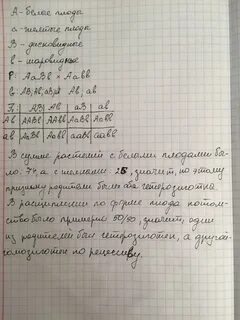 А - белые плоды
а - желтые плоды
В - дисковидные
в - шаровидные
P: АаВв × Аавв
G: АВ, Ав, аВ, ав Ав, ав
F1: | АВ | Ав | аВ | ав
Ав | ААВв | ААвв | АаВв | Аавв
ав | АаВв | Аавв | ааВв | аавв
В сумме растений с белыми плодами бы-
ло 74, а с желтыми 25, значит, по этому
признаку родители были гетерозиготны
В расщеплении по форме плода потом-
ство было примерно 50/50, значит, один
из родителей был гетерозиготен, а другой
гомозиготен по рецессиву.